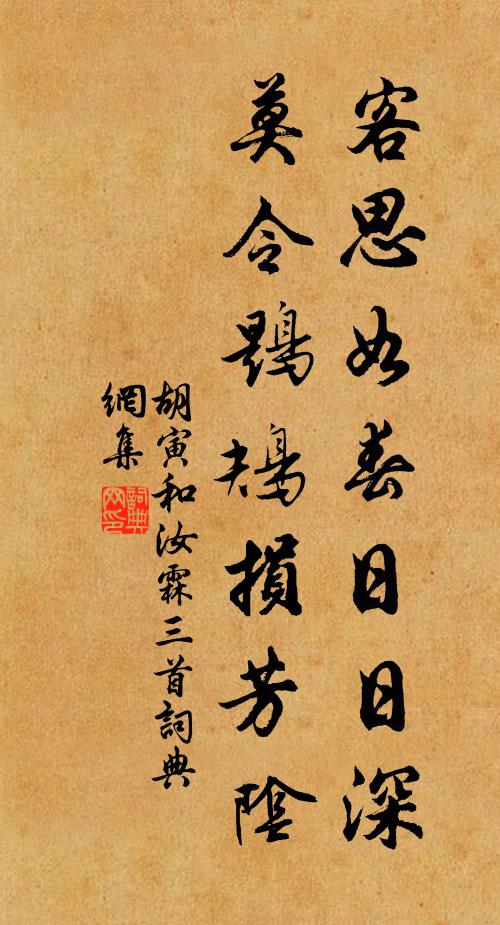 客思如春日日深
莫令鶗鴂損芳陰
胡寅和汝霖三首詞典
網集
詞典
网印